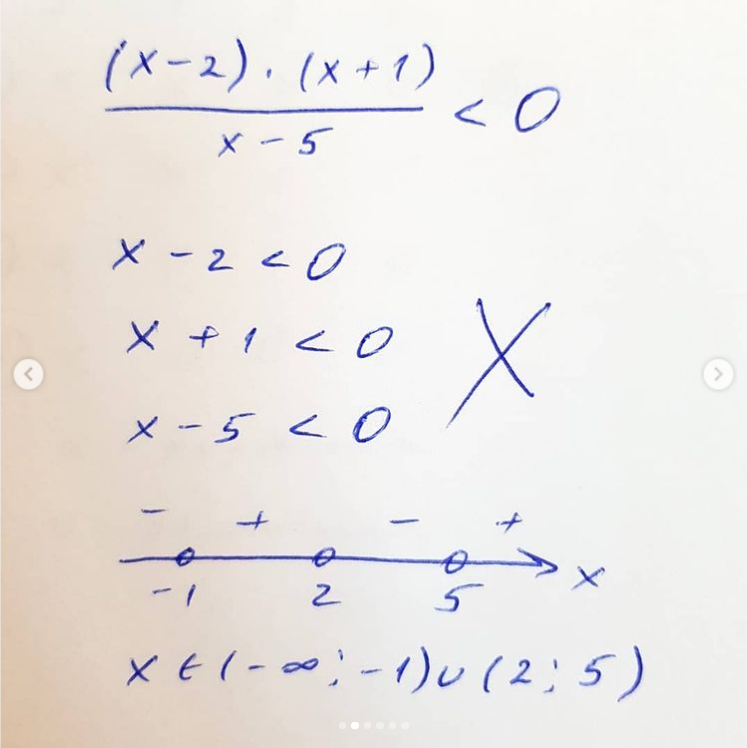 (x-2) · (x+1)
x-5
< 0
x - 2 < 0
x + 1 < 0
x - 5 < 0
X
- + - +
-1 2 5 x
x ∈ (-∞; -1) ∪ (2; 5)